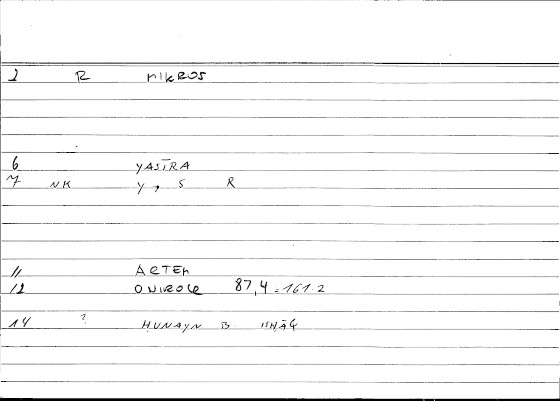 1 R MIKROS
6 YASTRA
7 NK Y, S R
11 ARTEM
12 ONIROCR 87,4 = 161.2
14 ? HUNAYN B ISHĀQ